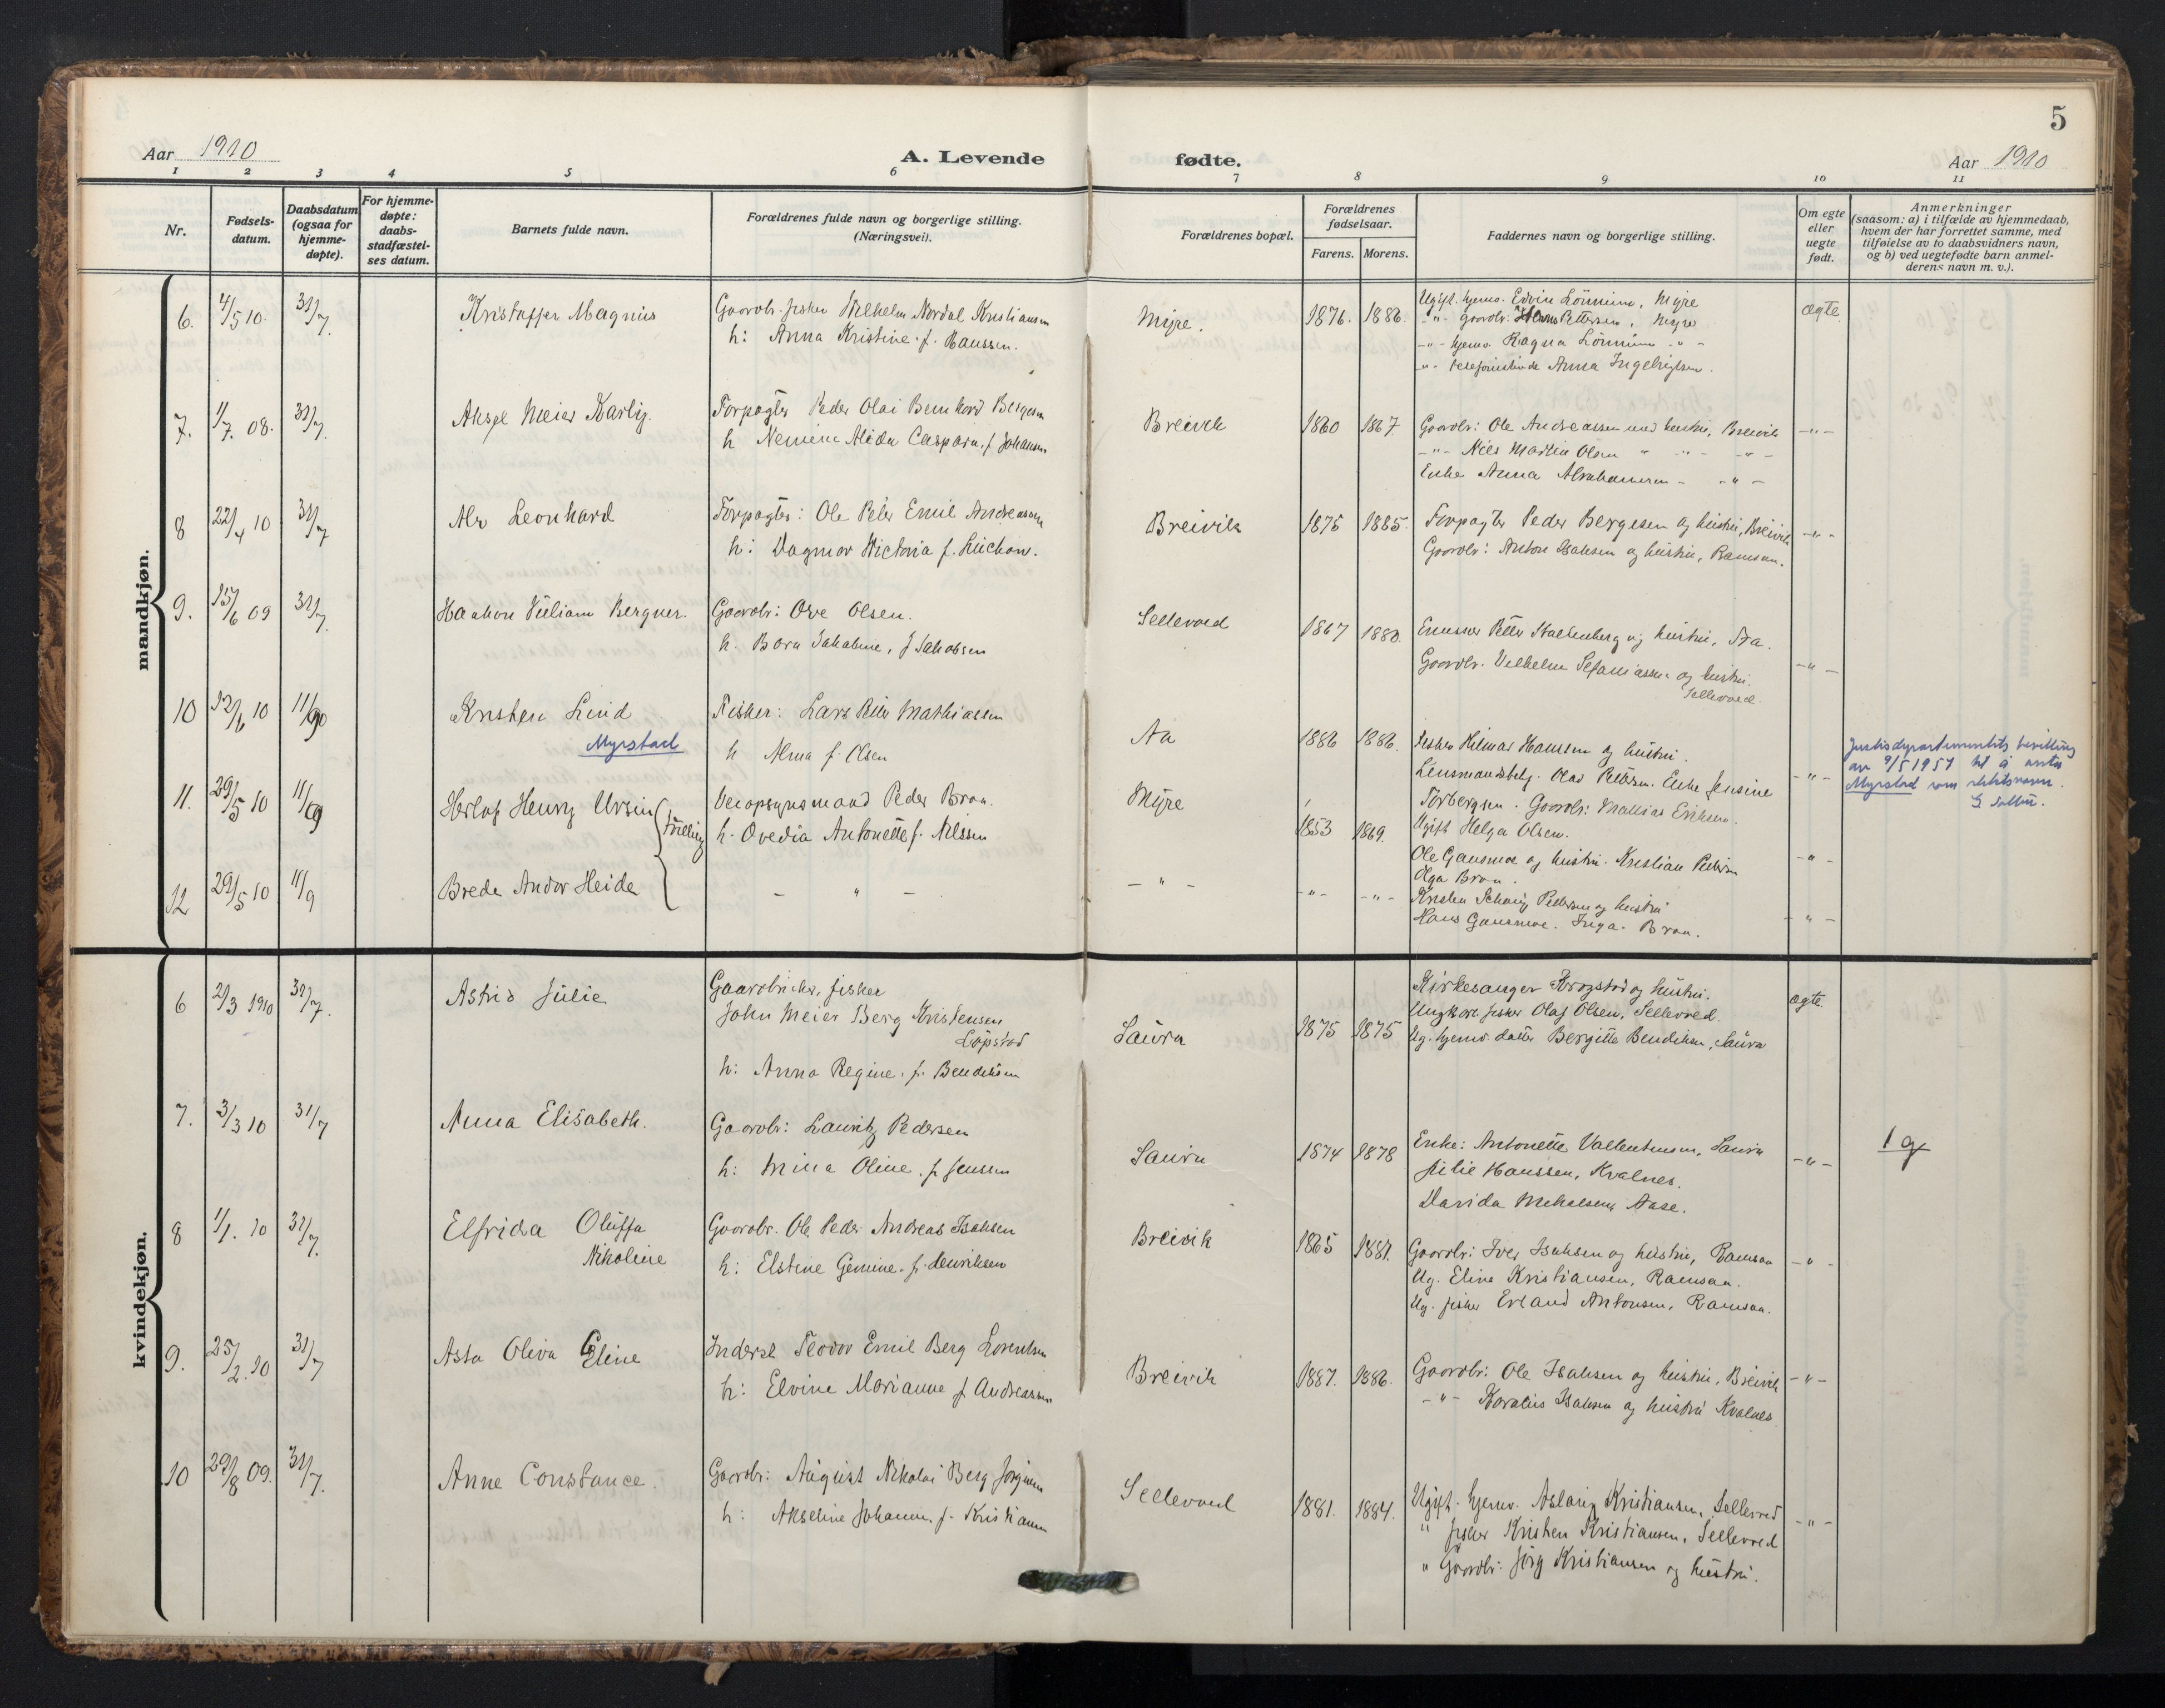 5
Aar 1910
A. Levende
fødte.
Aar 1910
1 2 3 4 5 6 7 8 9 10 11
Nr.
Fødsels-
datum.
Daabsdatum
(ogsaa for
hjemme-
døpte).
For hjemme-
døpte:
daabs-
stadfæstel-
ses datum.
Barnets fulde navn.
Forældrenes fulde navn og borgerlige stilling.
(Næringsvei).
Forældrenes bopæl.
Forældrenes
fødselsaar.
Farens. Morens.
Faddernes navn og borgerlige stilling.
Om egte
eller
uegte
født.
Anmerkninger
(saasom: a) i tilfælde av hjemmedaab,
hvem der har forrettet samme, med
tilføielse av to daabsvidners navn,
og b) ved uegtefødte barn anmel-
derens navn m. v.).
mandkjøn.
6. 4/5 10. 31/7. Kristoffer Magnus
Gaardbr. fisker Wilhelm Nordal Kristiansen
h: Anna Kristine f. Hanssen.
Myre. 1876. 1886.
Ugift. hjemv. Edvin Lönnum, Myre
-"- gaardbr. Hans Pettersen, Myre
-"- hjemv. Ragna Lönnum -"-
-"- telefonistinde Anna Ingebrigtsen.
ægte
7. 1/7. 08. 31/7. Aksel Meier Karly.
Forpagter Peder Olai Bernhard Bergesen
h Nemine Alida Caspara, f. Johansen
Breivik 1860 1867
Gaardbr: Ole Andreassen med hustru, Breivik
-"- Nils Martin Olsen " -"- -"-
Enke Anna Abrahamsen - -"-
-"-
8 22/4 10 31/7 Alv Leonhard
Forpagter: Ole Peter Emil Andreassen
h: Dagmar Victoria f. Lüchow.
Breivik 1875 1885.
Forpagter Peder Bergesen og hustru, Breivik
Gaardbr: Anton Isaksen og hustru, Ramsaa.
-"-
9. 15/6 09 31/7. Haakon Viliam Bergner.
Gaardbr: Ove Olsen.
h. Bora Jakobine, f Jakobsen
Sellevoed 1867 1880.
Petter Stoltenberg og hustru, Aa.
Gaardbr. Vilhelm Sefaniassen og hustru.
Sellevoed.
-"-
10 12/6 10 11/9 Kristen Lind
Myrstad
Fisker: Lars Peter Mathiassen
h Alma f. Olsen
Aa 1886 1886.
Fisker Hilmar Hansen og hustru.
Lensmandsbetj. Olav Pettersen. Enke Jensine
Torbergsen. Gaardbr: Mathias Eriksen.
Ugift Helga Olsen.
-"-
Justisdepartementets bevilling
av 9/5 1957 til å anta
Myrstad som slektsnavn.
11. 29/5 10 11/9 Herlof Henry Ursin
Tvilling
Veiopsynsmand Peder Braa.
h. Ovedia Antonette f. Nilssen
Myre 1853 1869.
Ole Gausmoe og hustru. Kristian Pettersen
Olga Braa.
-"-
12 29/5 10 11/9 Breda Andor Heide
- " -
- " - -"- -"-
Kristen Schønig Pettersen og hustru
Hans Gausmoe. Inga. Braa.
-"-
kvindekjøn.
6 2/3 1910 31/7. Astrid Julie
Gaardbruker, fisker
John Meier Berg Kristensen
Löpstad
h: Anna Regine. f. Bendiksen
Saura 1875 1875
Kirkesanger Krogstad og hustru.
Ungkarl fisker Olaf Olsen, Sellevoed.
Ug. hjemv. datter Bergitte Bendiksen, Saura
ægte.
7. 3/3 10 31/7 Anna Elisabeth.
Gaardbr: Lauritz Pedersen
h: Mina Oline. f. Jenssen
Saura 1874 1878
Enke: Antonette Vallentinsen, Saura
Julie Hanssen, Kvalnes.
Davida Mikalsen, Aase.
-"-
1 g
8 1/1. 10 31/7. Elfrida Oluffa
Nikoline
Gaardbr. Ole Peder Andreas Isaksen
h: Elstine Gemine. f. Henriksen
Breivik 1865 1881.
Gaardbr: Iver Isaksen og hustru, Ramsaa
Ug. Eline Kristiansen, Ramsaa.
Ug. fisker Erland Antonsen, Ramsaa.
-"-
9. 25/2. 10 31/7 Asta Oliva Eline
Inderst Teodor Emil Berg Lorentsen
h: Elvine Marianne f Andreassen
Breivik 1887. 1886.
Gaardbr: Ole Isaksen og hustru, Breivik
-"- Karelius Isaksen og hustru Kvalnes.
-"-
10 29/8 09. 31/7. Anne Constance.
Gaardbr: August Nikolai Berg Jörgensen
h: Akseline Johanne, f. Kristiansen
Sellevoed 1881. 1884.
Ugift. hjemv. Aslaug Kristiansen, Sellevoed
" fisker Kristen Kristiansen, Sellevoed
" Gaardbr: Jörg Kristiansen og hustru.
-"-